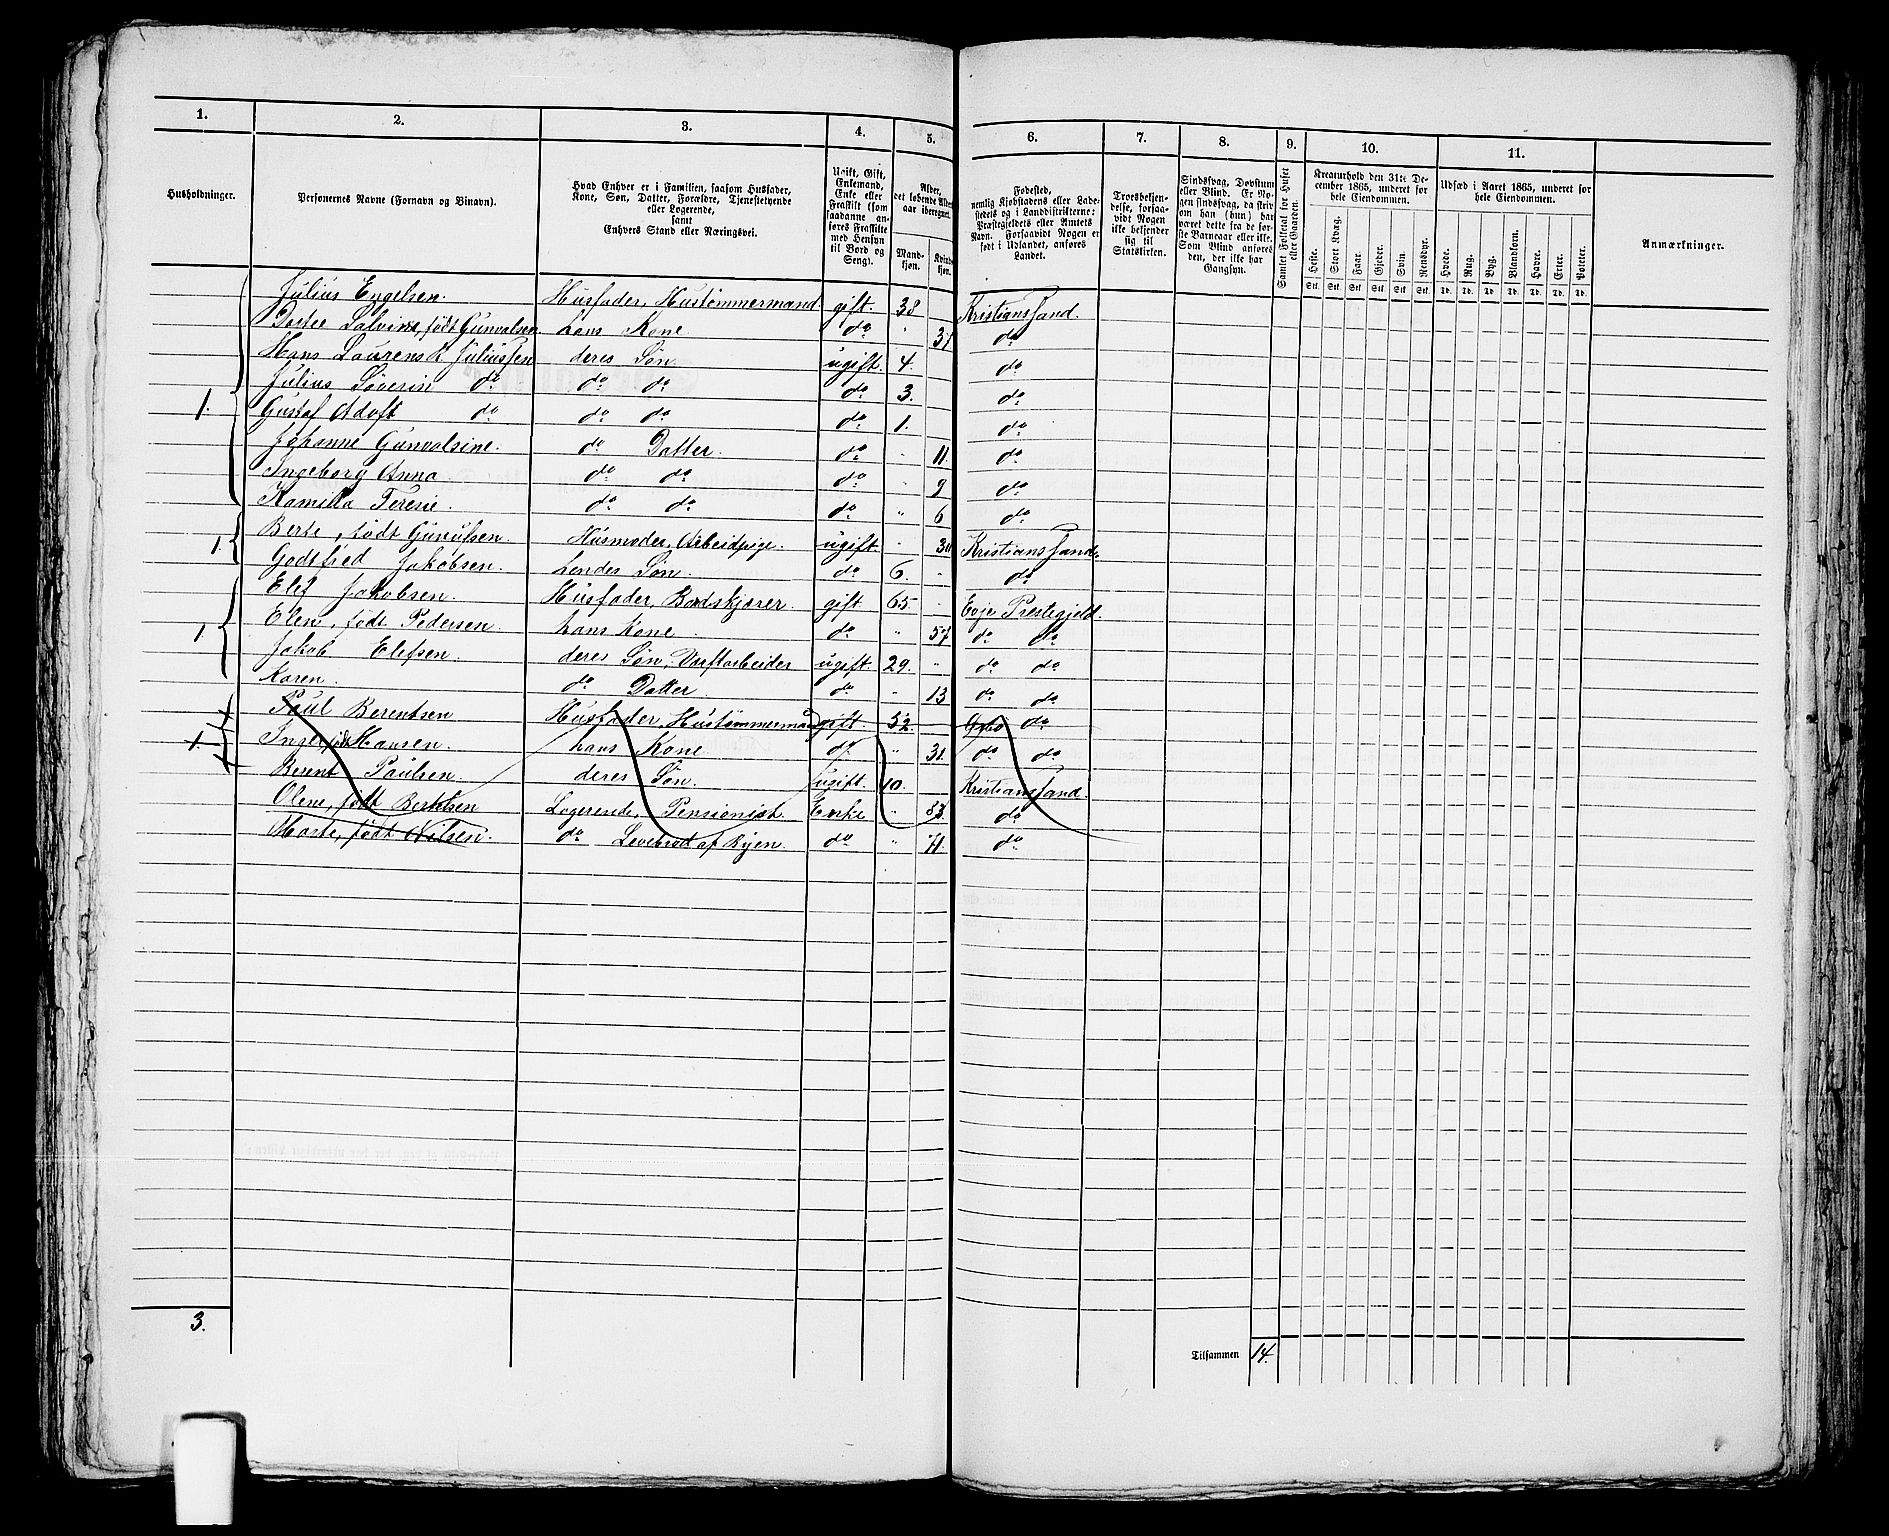 1. 2. 3. 4. 5. 6. 7. 8. 9. 10. 11.
Husholdninger.
Personernes Navne (Fornavn og Binavn).
Hvad Enhver er i Familien, saasom Husfader,
Kone, Søn, Datter, Forældre, Tjenestetyende
eller Logerende,
samt
Enhvers Stand eller Næringsvei.
Ugift, Gift,
Enkemand,
Enke eller
Fraskilt (som
saadanne an-
føres Fraskilte
med Hensyn
til Bord og
Seng).
Alder,
det løbende Alders-
aar iberegnet.
Mand-
kjøn.
Kvinde-
kjøn.
Fødested,
nemlig Kjøbstadens eller La-
destedets og i Landdistrikterne:
Præstegjeldets eller Amtets
Navn. Forsaavidt Nogen er
født i Udlandet, anføres
Landet.
Troesbekjen-
delse, forsaa-
vidt Nogen
ikke bekjender
sig til
Statskirken.
Sindssvag, Døvstum
eller Blind. Er No-
gen sindssvag, da skriv
om han (hun) har
været dette fra de før-
ste Barneaar eller ikke.
Som Blind anføres
den, der ikke har
Gangsyn.
Samlet Folketal for Huset
eller Gaarden.
Kreaturhold den 31te De-
cember 1865, underet for
hele Eiendommen.
Heste. Stort Kvæg. Faar. Gjeder. Svin. Rensdyr.
Stk. Stk. Stk. Stk. Stk. Stk.
Udsæd i Aaret 1865, underet for
hele Eiendommen.
Hvede. Rug. Byg. Blandkorn. Havre. Erter. Poteter.
Td. Td. Td. Td. Td. Td. Td.
Anmærkninger.
Julius Engelsen. Husfader, Hustømmermand. gift. 38 Kristianssand.
Dorte Salvine, født Gunvalsen hans Kone do " 37 do
Hans Laurens K. Juliussen deres Søn. ugift. 4. do
Julius Søverin do do do do 3. do
1. Gustaf Adolf do do do do 1. do
Johanne Gunvalsine. do Datter. do " 11. do
Ingeborg Anna do do do " 9 do
Kamilla Teresie. do do do " 6 do
1. Berte, født Gunulsen. Husmoder, Arbeidpige. ugift. " 30 Kristianssand.
Godtfred Jakobsen. hendes Søn. do 6. " do
Elef Jakobsen. Husfader, Bordskjærer. gift 65. " Evje Prestegjeld.
1. Elen, født Pedersen hans Kone. do " 57 do do
Jakob Elefsen. deres Søn, Værftarbeider ugift. 29. " do do
Karen. do Datter. do " 13 do do
Paul Berentsen Husfader, Hustømmermand gift 52. do
1. Inger født Hansen. hans Kone. do " 31. do do
Berent Paulsen. deres Søn. ugift. 10. Kristianssand.
Olene, født Berntsen Logerende, Pensionist Enke " 83. do
Marte, født Nilsen. do Levebrød af Byen. do " 71. do
3.
Tilsammen 14.